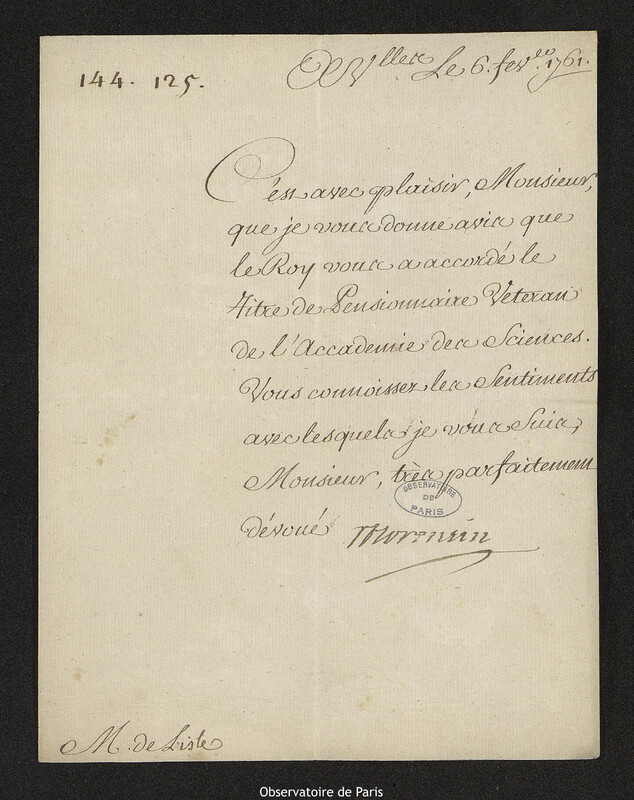 144. 125.
A Vlles Le 6. fevr. 1761.
C'est avec plaisir, Monsieur,
que je vous donne avis que
le Roy vous a accordé le
Titre de Pensionnaire Veteran
de l'Accademie des Sciences.
Vous connoissez les Sentiments
avec lesquels je vous Suis,
Monsieur, très parfaitement
dévoué
OBSERVATOIRE
DE
PARIS
M. de Lisle
Observatoire de Paris